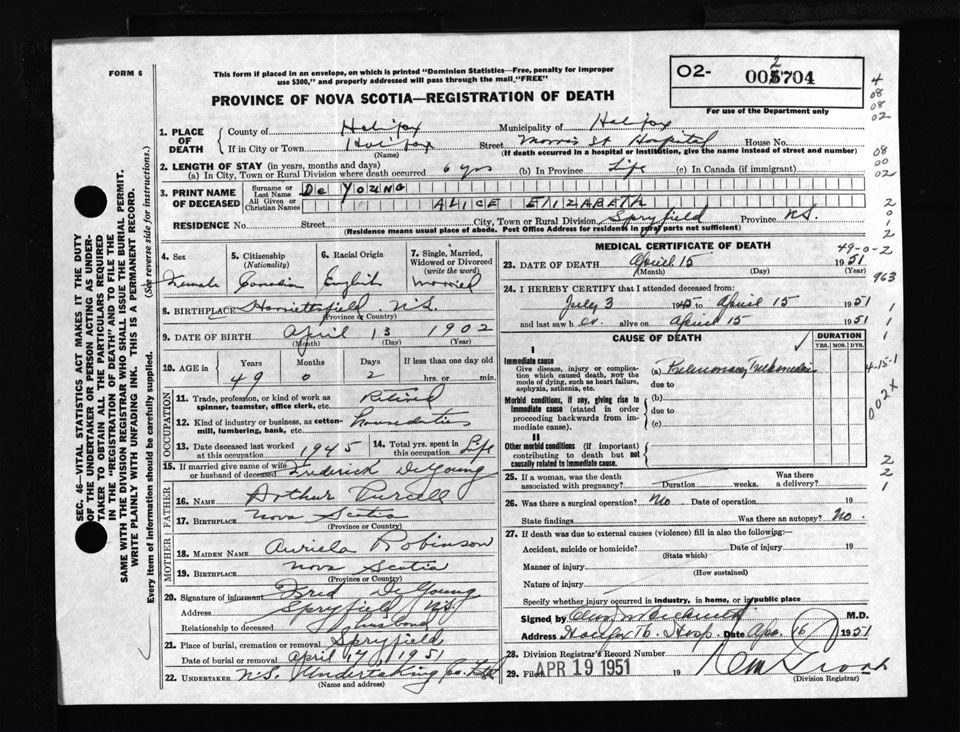 FORM 6
This form if placed in an envelope, on which is printed "Dominion Statistics—Free, penalty for improper
use $300," and properly addressed will pass through the mail "FREE"
PROVINCE OF NOVA SCOTIA—REGISTRATION OF DEATH
02- 002704
For use of the Department only
1. PLACE OF DEATH
County of Halifax Municipality of Halifax
If in City or Town Halifax (Name) Street Morris St Hospital House No.
(If death occurred in a hospital or institution, give the name instead of street and number)
2. LENGTH OF STAY (in years, months and days)
(a) In City, Town or Rural Division where death occurred 6 yrs (b) In Province Life (c) In Canada (if immigrant)
3. PRINT NAME OF DECEASED
Surname or Last Name De YOUNG
All Given or Christian Names ALICE ElIZABETH
RESIDENCE No. Street City, Town or Rural Division Spryfield Province N.S.
(Residence means usual place of abode. Post Office Address for residents in rural parts not sufficient)
4. Sex Female
5. Citizenship (Nationality) Canadian
6. Racial Origin English
7. Single, Married, Widowed or Divorced (write the word) Married
8. BIRTHPLACE Harrietsfield N.S.
(Province or Country)
9. DATE OF BIRTH April 13 1902
(Month) (Day) (Year)
10. AGE in Years Months Days If less than one day old
49 0 2 hrs. or min.
OCCUPATION
11. Trade, profession, or kind of work as spinner, teamster, office clerk, etc. Retired
12. Kind of industry or business, as cotton-mill, lumbering, bank, etc. houseduties
13. Date deceased last worked at this occupation 1945
14. Total yrs. spent in this occupation Life
15. If married give name of wife or husband of deceased Frederick DeYoung
FATHER
16. NAME Arthur Purcell
17. BIRTHPLACE Nova Scotia
(Province or Country)
MOTHER
18. MAIDEN NAME Auriela Robinson
19. BIRTHPLACE Nova Scotia
(Province or Country)
20. Signature of informant Fred DeYoung
Address Spryfield N.S.
Relationship to deceased husband
21. Place of burial, cremation or removal Spryfield
Date of burial or removal April 17, 1951
22. UNDERTAKER N.S. Undertaking Co. Ltd
(Name and address)
MEDICAL CERTIFICATE OF DEATH
23. DATE OF DEATH April 15 1951
(Month) (Day) (Year)
24. I HEREBY CERTIFY that I attended deceased from:
July 3 1945 to April 15 1951
and last saw h er alive on April 15 1951
CAUSE OF DEATH
DURATION
YRS. MOS. DYS.
I
Immediate cause
Give disease, injury or complication which caused death, NOT the mode of dying, such as heart failure, asphyxia, asthenia, etc.
(a) Pulmonary Tuberculosis
due to
Morbid conditions, if any, giving rise to immediate cause (stated in order proceeding backwards from immediate cause).
(b)
due to
(c)
II
Other morbid conditions (if important) contributing to death but not causally related to immediate cause.
25. If a woman, was the death associated with pregnancy? Duration weeks. Was there a delivery?
26. Was there a surgical operation? No Date of operation 19
State findings Was there an autopsy? No.
27. If death was due to external causes (violence) fill in also the following:—
Accident, suicide or homicide? Date of injury 19
(State which)
Manner of injury
(How sustained)
Nature of injury
Specify whether injury occurred in industry, in home, or in public place
Signed by M.D.
Address Halifax Tb. Hosp. Date Apr. 16 1951
28. Division Registrar's Record Number
29. Filed APR 19 1951 19
(Division Registrar)
SEC. 46—VITAL STATISTICS ACT MAKES IT THE DUTY
OF THE UNDERTAKER OR PERSON ACTING AS UNDER-
TAKER TO OBTAIN ALL THE PARTICULARS REQUIRED
IN THE "REGISTRATION OF DEATH" AND TO FILE THE
SAME WITH THE DIVISION REGISTRAR WHO SHALL ISSUE THE BURIAL PERMIT.
WRITE PLAINLY WITH UNFADING INK. THIS IS A PERMANENT RECORD.
Every item of information should be carefully supplied. (See reverse side for instructions.)
4
08
08
02
08
00
02
2
0
1
2
49-0-2
963
1
1
1
4-15-1
002x
2
2
1